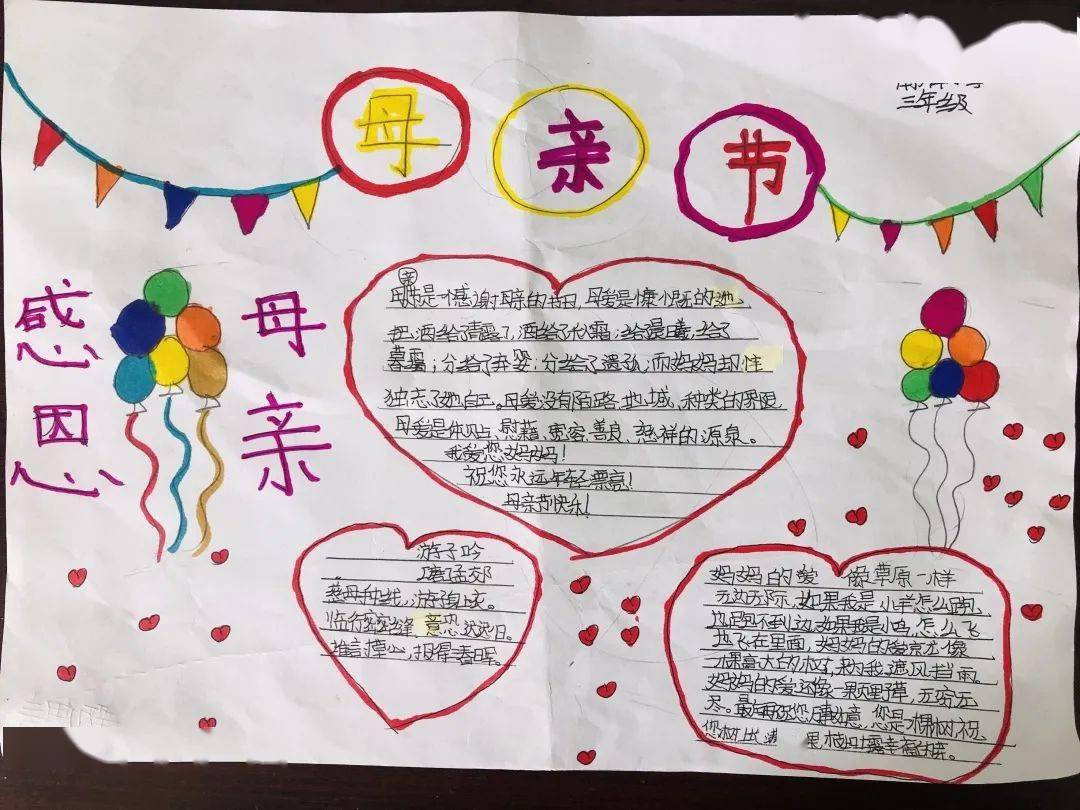 三年级
母亲节
感恩
母亲
亲
母是感谢母亲的节日,母爱是慷慨的她、
把洒给清露了,洒给了秋霜;给晨曦,给了
暮霭;分给了弃婴;分给了遗孤;而妈妈却惟
独忘了她自己。母爱没有陌路、地域、种类的界限
母爱是体贴、慰藉、宽容、善良、慈祥的源泉。
我爱您妈妈!
祝您永远年轻漂亮!
母亲节快乐!
游子吟
唐孟郊
慈母手中线,游子身上衣。
临行密密缝 意恐迟迟归。
谁言寸草心,报得三春晖。
妈妈的爱 像草原一样
无边无际,如果我是小羊怎么跑
也跑不到边如果我是小鸟,怎么飞
也飞在里面,妈妈的爱京尤像
一棵高大的树,来为我遮风挡雨
妈妈的爱还像一颗野草,无穷无
尽。最后再祝您万事如意,您是一棵树祝
您树上 满 果,枝如土露幸福